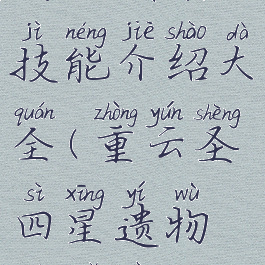 jì néng jiè shào dà
技能介绍大
quán zhòng yún shèng
全(重云圣
sì xīng yí wù
四星遗物